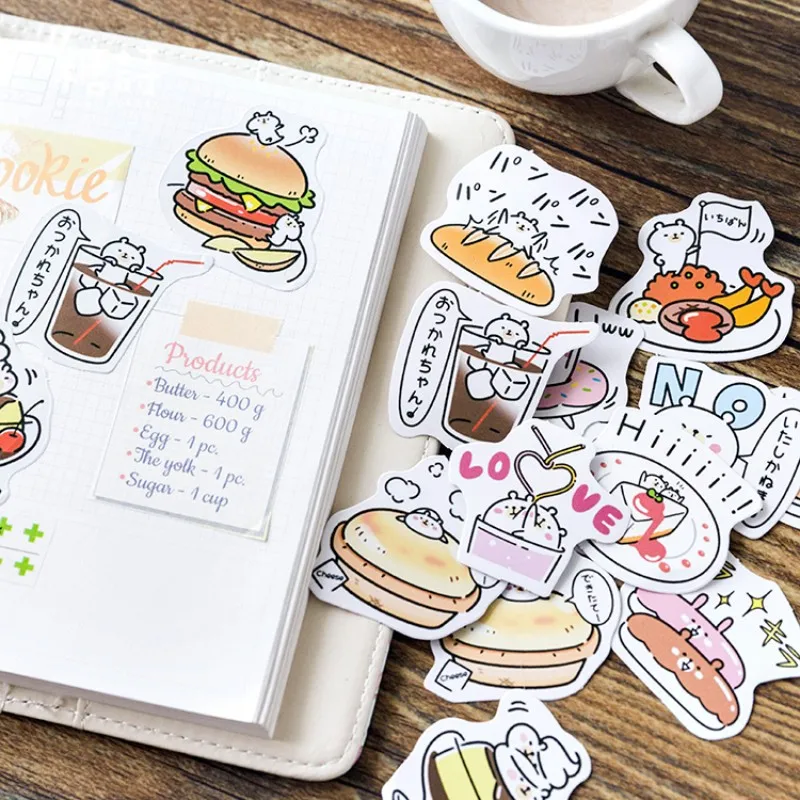 ookie
おつかれちゃん♪
Products
Butter - 400 g
Flour - 600 g
Egg - 1 pc.
The yolk - 1 pc.
Sugar - 1 cup
パン
パン
パン
パン
パン
いちばん
おつかれちゃん♪
Uww
NO
Hiiiiii!!
いたしかねま
LOVE
cheese
できたてー
cheese
キラ